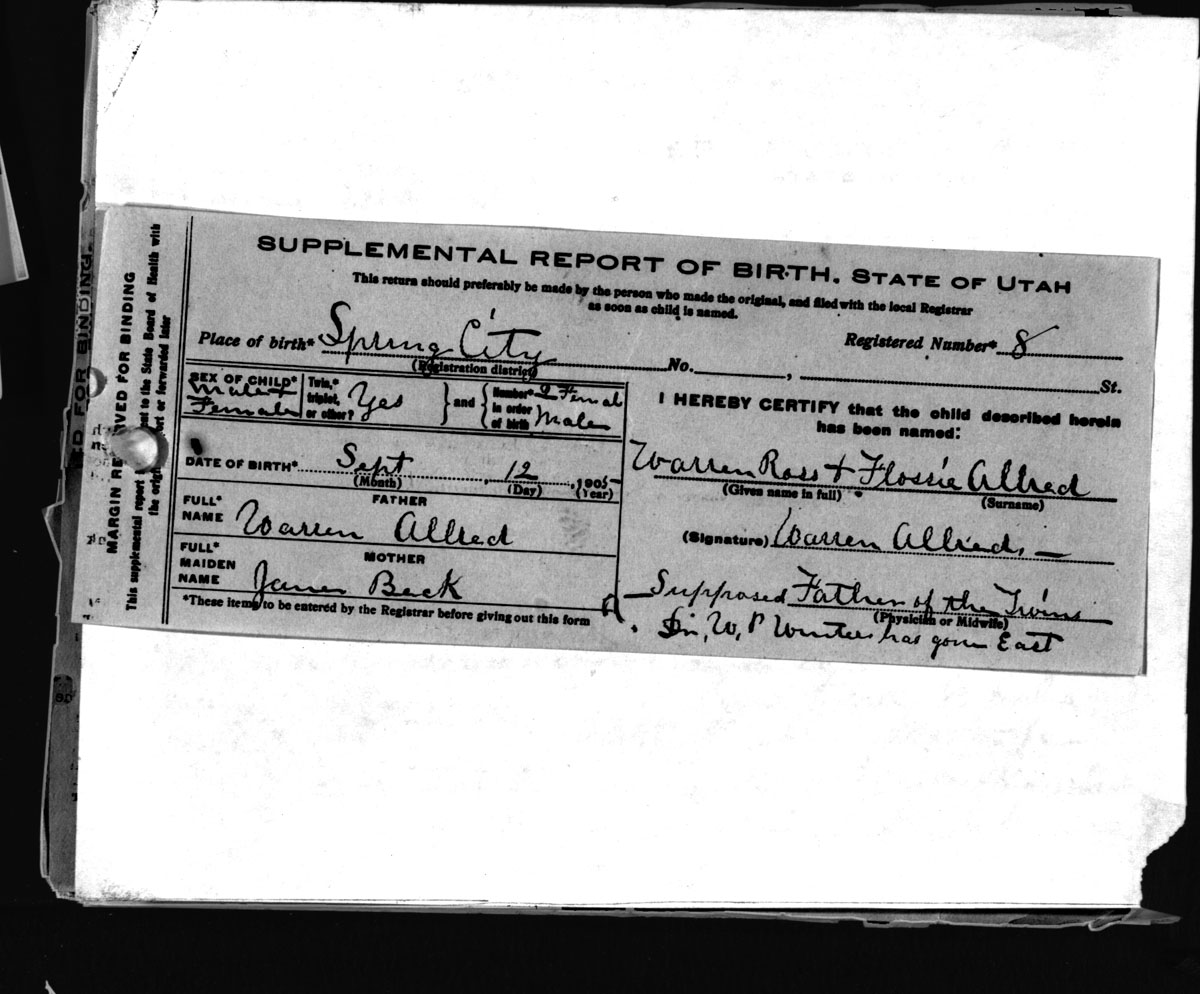 SUPPLEMENTAL REPORT OF BIRTH, STATE OF UTAH
This return should preferably be made by the person who made the original, and filed with the local Registrar
as soon as child is named.
Place of birth* Spring City No. , St.
(Registration district)
Registered Number* 8
SEX OF CHILD* Male + Female
Twin,* triplet, or other? Yes
and
Number* in order of birth Female Male
DATE OF BIRTH* Sept , 12 , 1905
(Month) (Day) (Year)
FATHER
FULL* NAME Warren Allred
MOTHER
FULL* MAIDEN NAME Beck
*These items to be entered by the Registrar before giving out this form
I HEREBY CERTIFY that the child described herein
has been named:
Warren Ross + Flossie Allred
(Given name in full) (Surname)
(Signature) Warren Allred
Supposed Father of the Twins
(Physician or Midwife)
W. P. Winters has gone East
MARGIN RESERVED FOR BINDING
This supplemental report to the State Board of Health with
the original or forwarded later
D FOR BINDING.